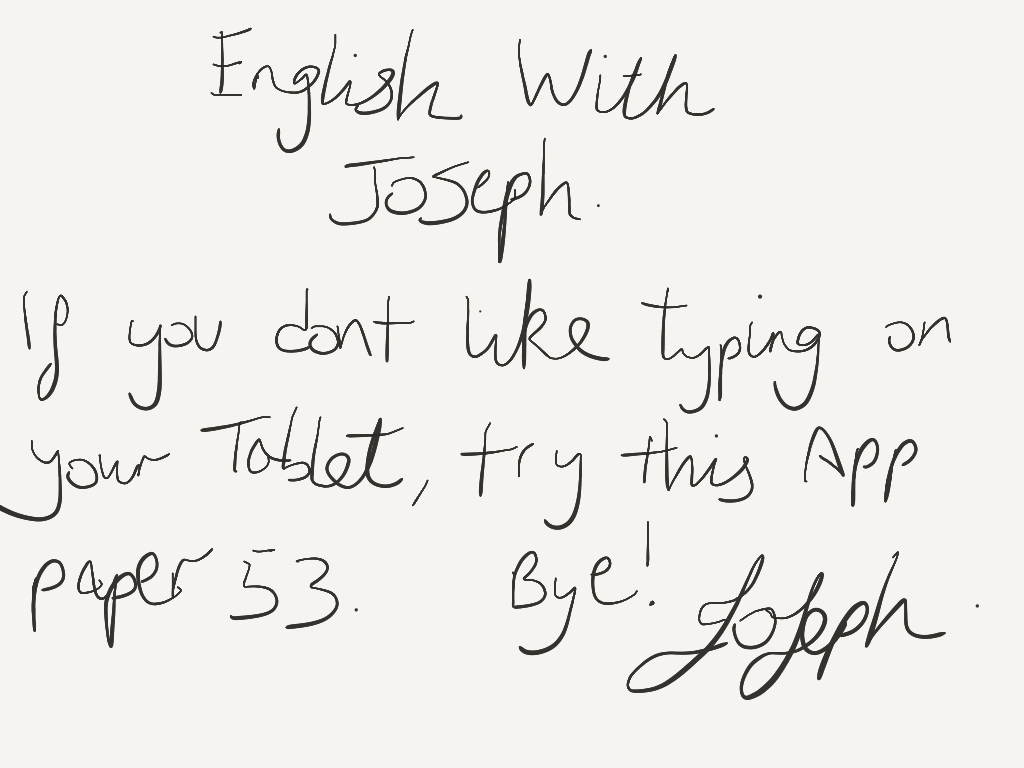 English With
Joseph.
If you dont like typing on
your Tablet, try this App
paper 53. Bye! Joseph.